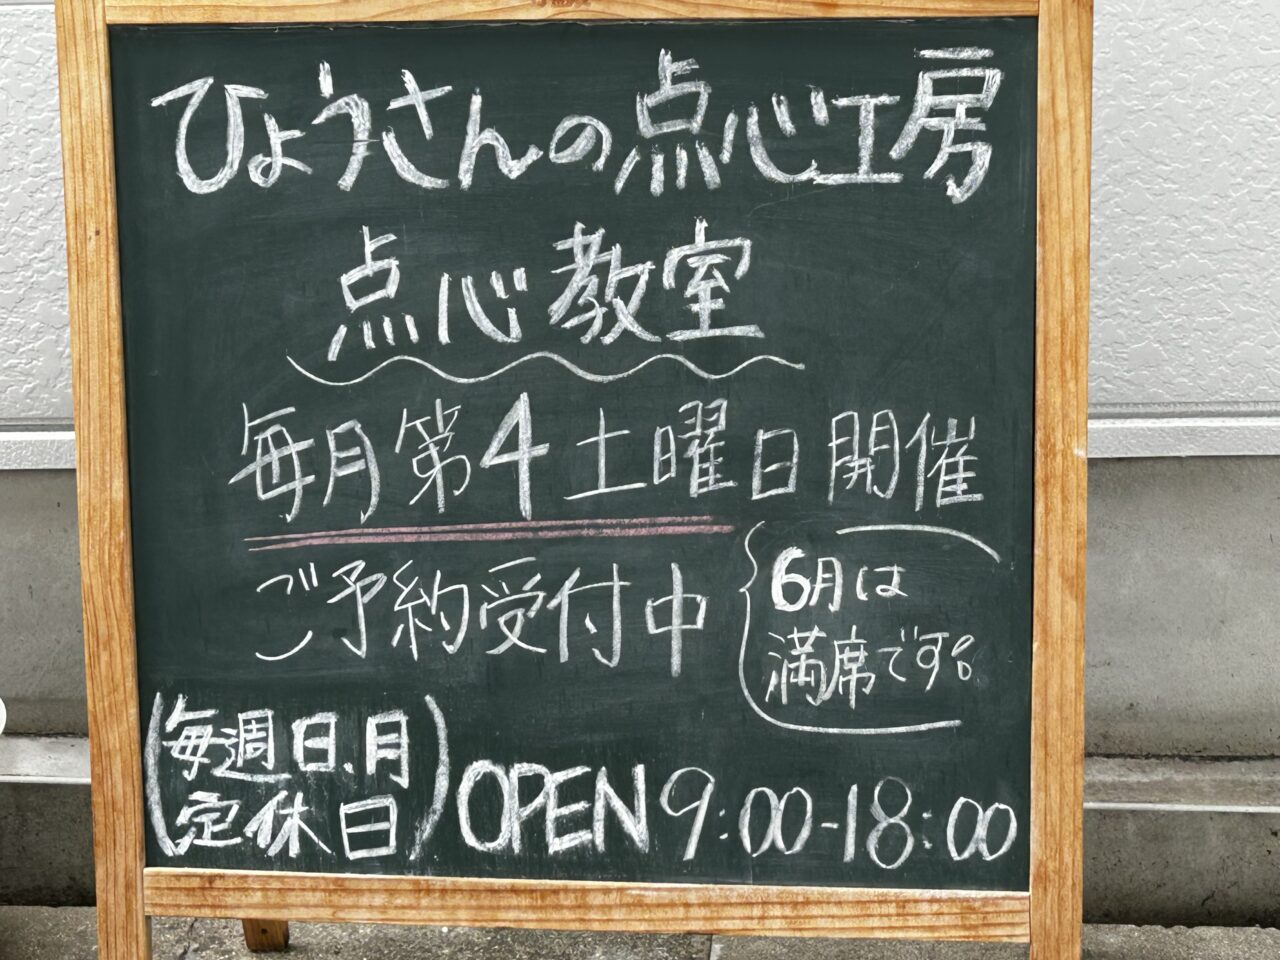 ひょうさんの点心工房
点心教室
毎月第4土曜日開催
ご予約受付中
6月は
満席です。
(毎週日、月
定休日)
OPEN 9:00-18:00